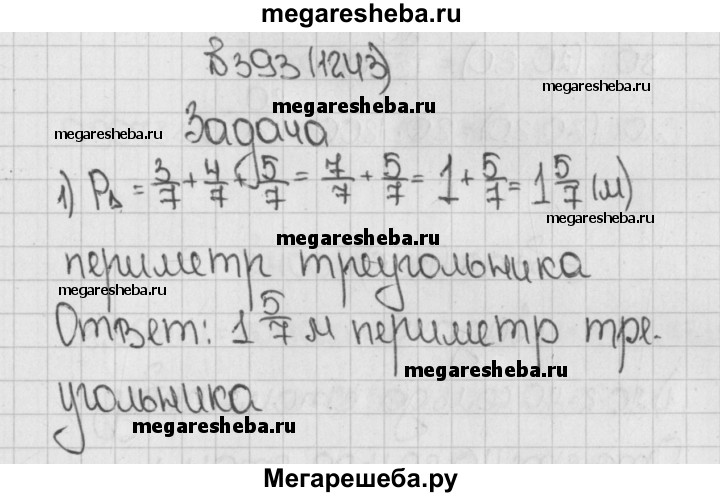 megaresheba.ru
В 393 (1243)
megaresheba.ru
megaresheba.ru
megaresheba.ru
Задача
1) P△ = 3/7 + 4/7 + 5/7 = 7/7 + 5/7 = 1 + 5/7 = 1 5/7 (м)
megaresheba.ru
megaresheba.ru
периметр треугольника
megaresheba.ru
Ответ: 1 5/7 м периметр тре-
megaresheba.ru
угольника
megaresheba.ru
Мегарешеба.ру